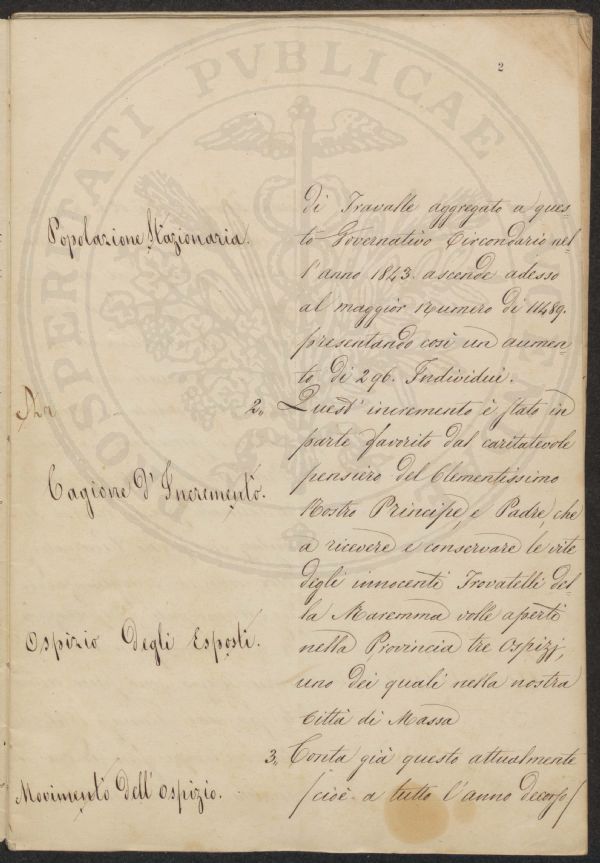 2
PROSPERITATI PVBLICAE
Popolazione Stazionaria.
di Travalle aggregato a ques-
to Governativo Circondario nel-
l'anno 1843. ascende adesso
al maggior Numero di 11489.
presentando così un aumen-
to di 296. Individui.
2. Quest' incremento è stato in
parte favorito dal caritatevole
Cagione D' Incremento.
pensiero del Clementissimo
Nostro Principe, e Padre, che
a ricevere e conservare le vite
degli innocenti Trovatelli del-
la Maremma volle aperti
Ospizio Degli Esposti.
nella Provincia tre Ospizj,
uno dei quali nella nostra
Città di Massa
3. Conta già questo attualmente
Movimento Dell' Ospizio.
/ cioè a tutto l'anno decorso /